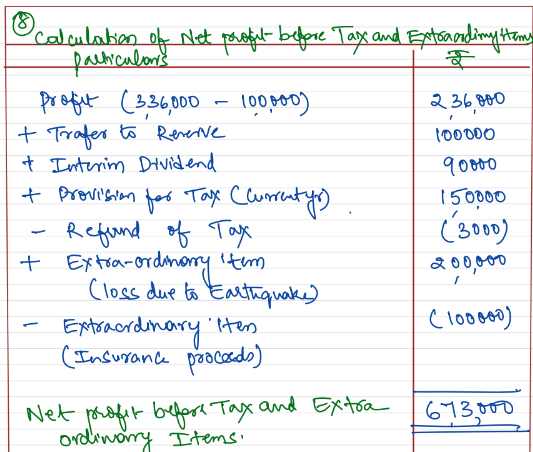 ⑧ Calculation of Net profit before Tax and Extraordinary Items
Particulars ₹
Profit (336,000 - 100,000) 2,36,000
+ Trafer to Reserve 100000
+ Interim Dividend 90000
+ Provision for Tax (Current yr) 150000
- Refund of Tax (3000)
+ Extra-ordinary item 200,000
(loss due to Earthquake)
- Extraordinary Item (100000)
(Insurance proceeds)
Net profit before Tax and Extra 673,000
ordinary Items.